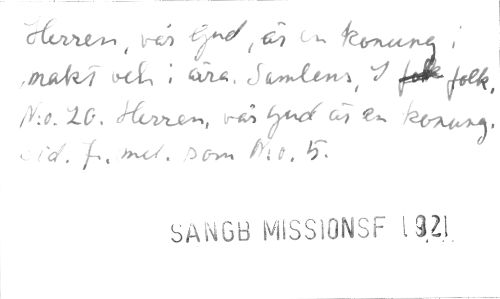 Herren, vår Gud, är en konung i
makt och i ära. Samlens, I folk,
N:o. 20. Herren, vår Gud är en konung.
id. f. mel. som N:o. 5.
SANGB MISSIONSF 1921